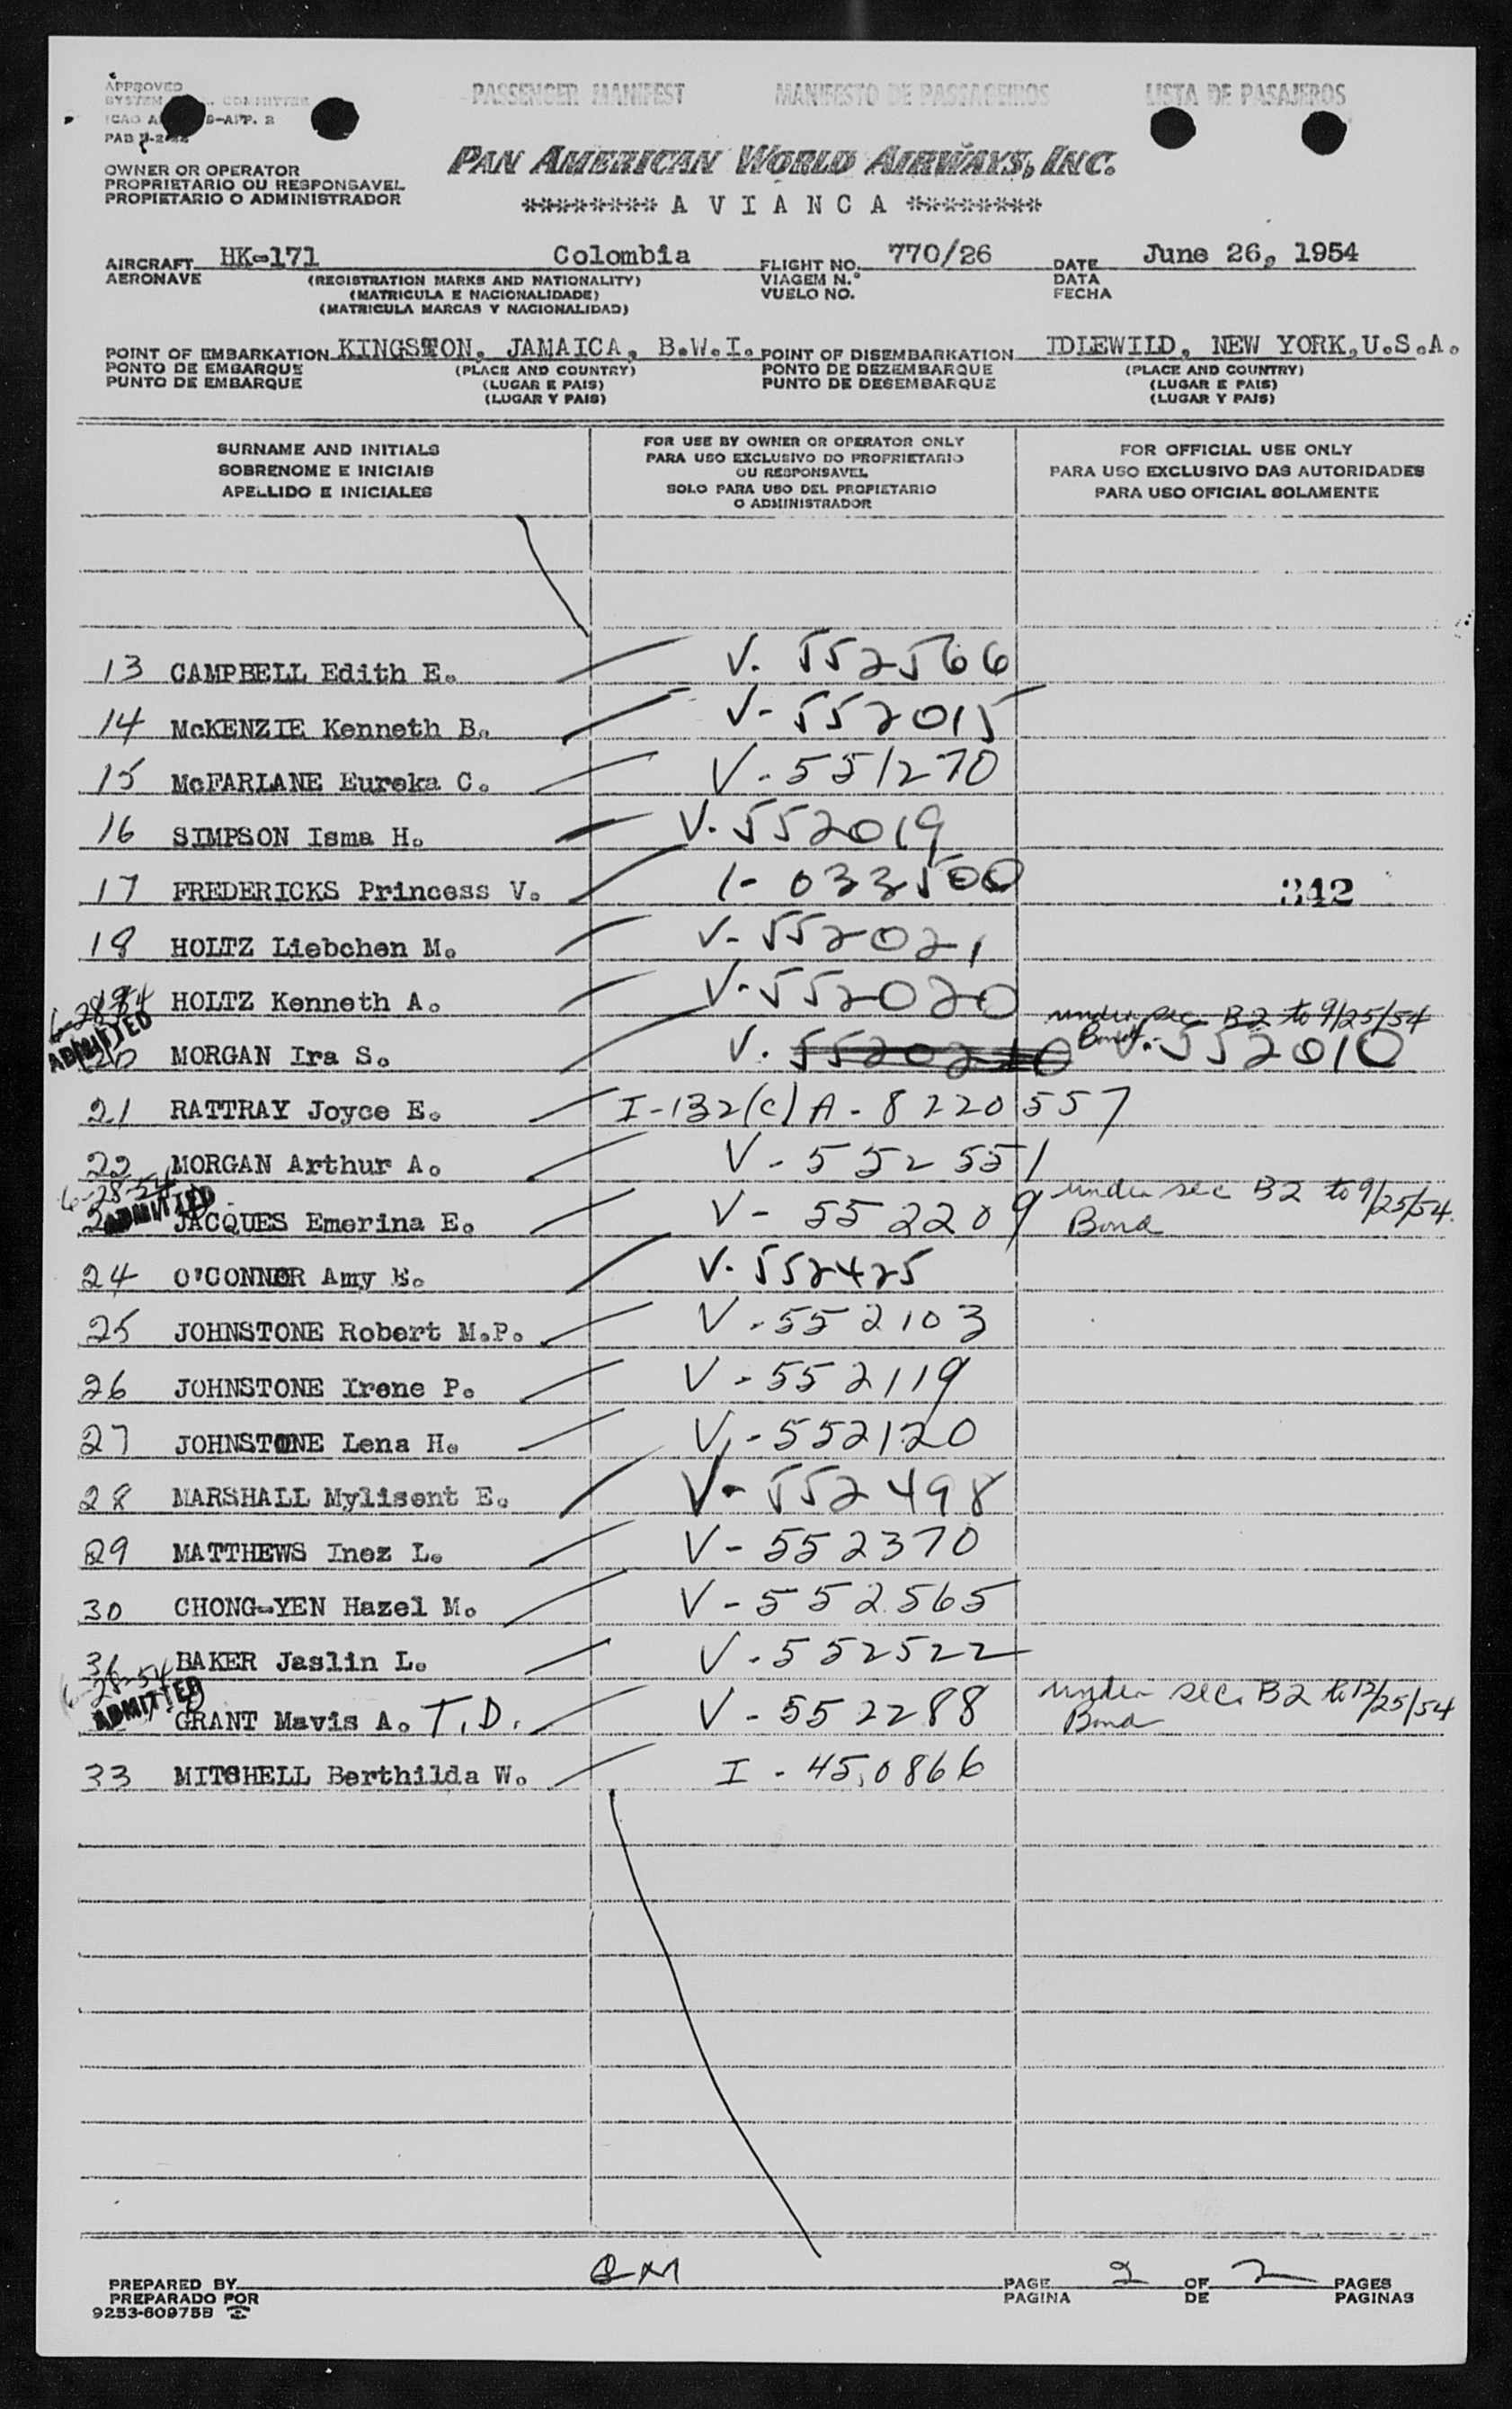 APPROVED
SYSTEM COMMITTEE
PASSENGER MANIFEST MANIFESTO DE PASSAGEIROS LISTA DE PASAJEROS
OWNER OR OPERATOR
PROPRIETARIO OU RESPONSAVEL
PROPIETARIO O ADMINISTRADOR
PAN AMERICAN WORLD AIRWAYS, INC.
******** A V I A N C A ********
AIRCRAFT HK-171 Colombia FLIGHT NO. 770/26 DATE June 26, 1954
AERONAVE (REGISTRATION MARKS AND NATIONALITY) VIAGEM N.° DATA
(MATRICULA E NACIONALIDADE) VUELO NO. FECHA
(MATRICULA MARCAS Y NACIONALIDAD)
POINT OF EMBARKATION KINGSTON, JAMAICA, B.W.I. POINT OF DISEMBARKATION IDLEWILD, NEW YORK, U.S.A.
PONTO DE EMBARQUE (PLACE AND COUNTRY) PONTO DE DEZEMBARQUE (PLACE AND COUNTRY)
PUNTO DE EMBARQUE (LUGAR E PAIS) PUNTO DE DESEMBARQUE (LUGAR E PAIS)
(LUGAR Y PAIS) (LUGAR Y PAIS)
SURNAME AND INITIALS
SOBRENOME E INICIAIS
APELLIDO E INICIALES
FOR USE BY OWNER OR OPERATOR ONLY
PARA USO EXCLUSIVO DO PROPRIETARIO
OU RESPONSAVEL
SOLO PARA USO DEL PROPIETARIO
O ADMINISTRADOR
FOR OFFICIAL USE ONLY
PARA USO EXCLUSIVO DAS AUTORIDADES
PARA USO OFICIAL SOLAMENTE
13 CAMPBELL Edith E. V. 552566
14 McKENZIE Kenneth B. V- 552015
15 McFARLANE Eureka C. V-551270
16 SIMPSON Isma H. V. 552019
17 FREDERICKS Princess V. 1- 033500 342
18 HOLTZ Liebchen M. V- 552021
19 HOLTZ Kenneth A. V-552020
6-28-54 under sec B2 to 9/25/54
ADMITTED Bond
20 MORGAN Ira S. V. V. 552010
21 RATTRAY Joyce E. I-132(c) A-8220557
22 MORGAN Arthur A. V-552551
6-28-54 ADMITTED
JACQUES Emerina E. V-552209 under sec B2 to 9/25/54.
Bond
24 O'CONNOR Amy E. V. 552425
25 JOHNSTONE Robert M.P. V-552103
26 JOHNSTONE Irene P. V-552119
27 JOHNSTONE Lena H. V-552120
28 MARSHALL Mylisent E. V- 552498
29 MATTHEWS Inez L. V-552370
30 CHONG-YEN Hazel M. V-552565
31 BAKER Jaslin L. V-552522
6-28-54 ADMITTED
GRANT Mavis A. T.D. V-552288 under sec. B2 to 12/25/54
Bond
33 MITCHELL Berthilda W. I-450866
PREPARED BY PAGE 2 OF 2 PAGES
PREPARADO POR PAGINA DE PAGINAS
9253-60975B